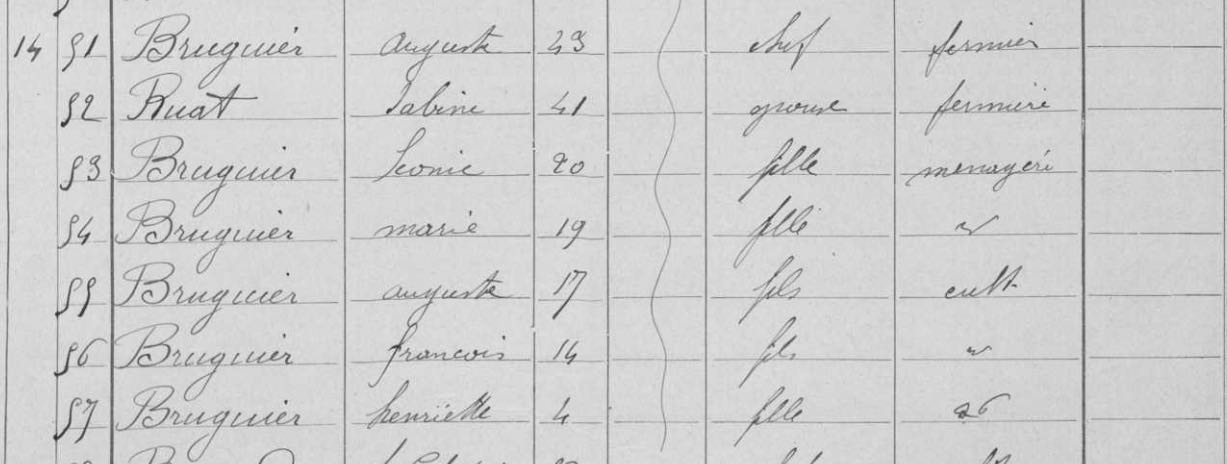 14 51 Bruguier auguste 43 chef fermier
52 Ruat Sabine 41 epouse fermiere
53 Bruguier Leonie 20 fille menagère
54 Bruguier marie 19 fille "
55 Bruguier auguste 17 fils cult
56 Bruguier francois 14 fils "
57 Bruguier henriette 4 fille